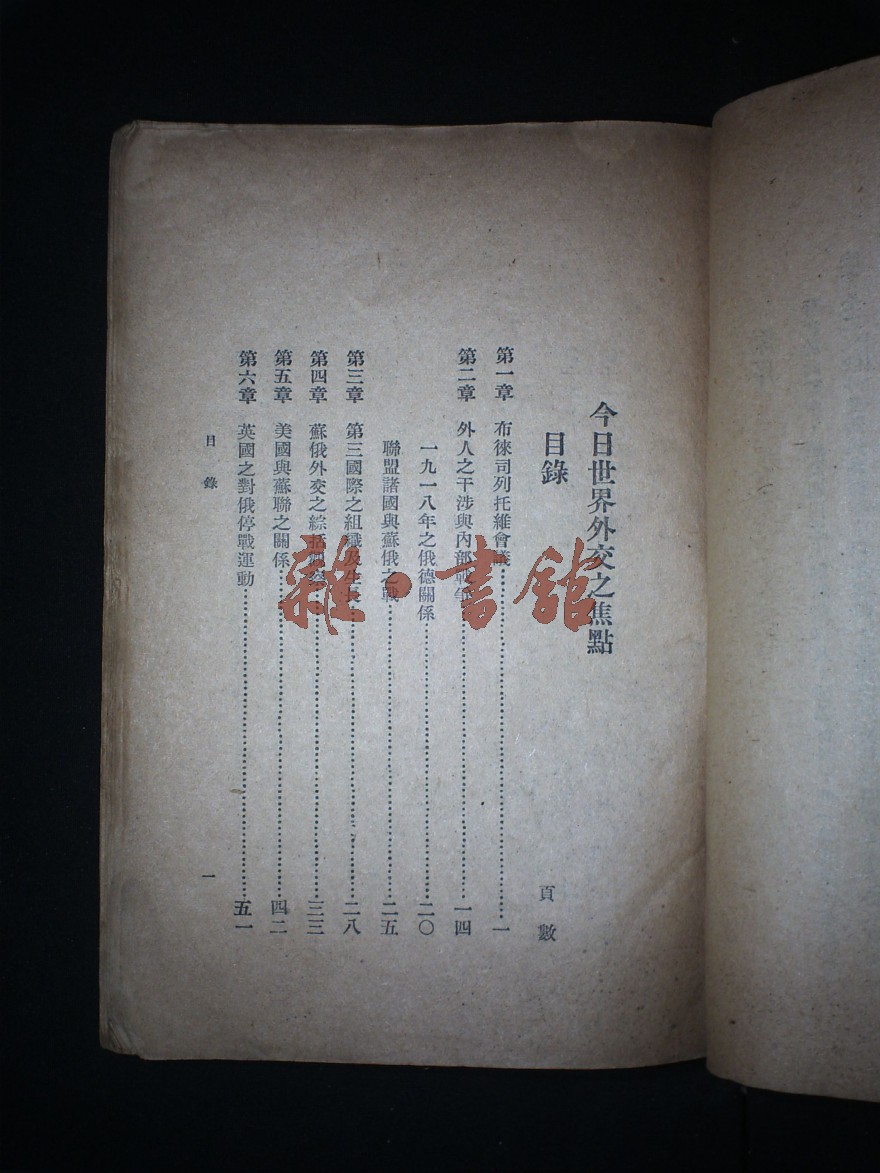 今日世界外交之焦點
目錄
頁數
第一章 布徠司列托維會議……一
第二章 外人之干涉與內部戰爭……一四
一九一八年之俄德關係……二〇
聯盟諸國與蘇俄之戰……二五
第三章 第三國際之組織及生長……二八
第四章 蘇俄外交之綜括觀察……三三
第五章 美國與蘇聯之關係……四二
第六章 英國之對俄停戰運動……五一
目錄
一
雜·書館